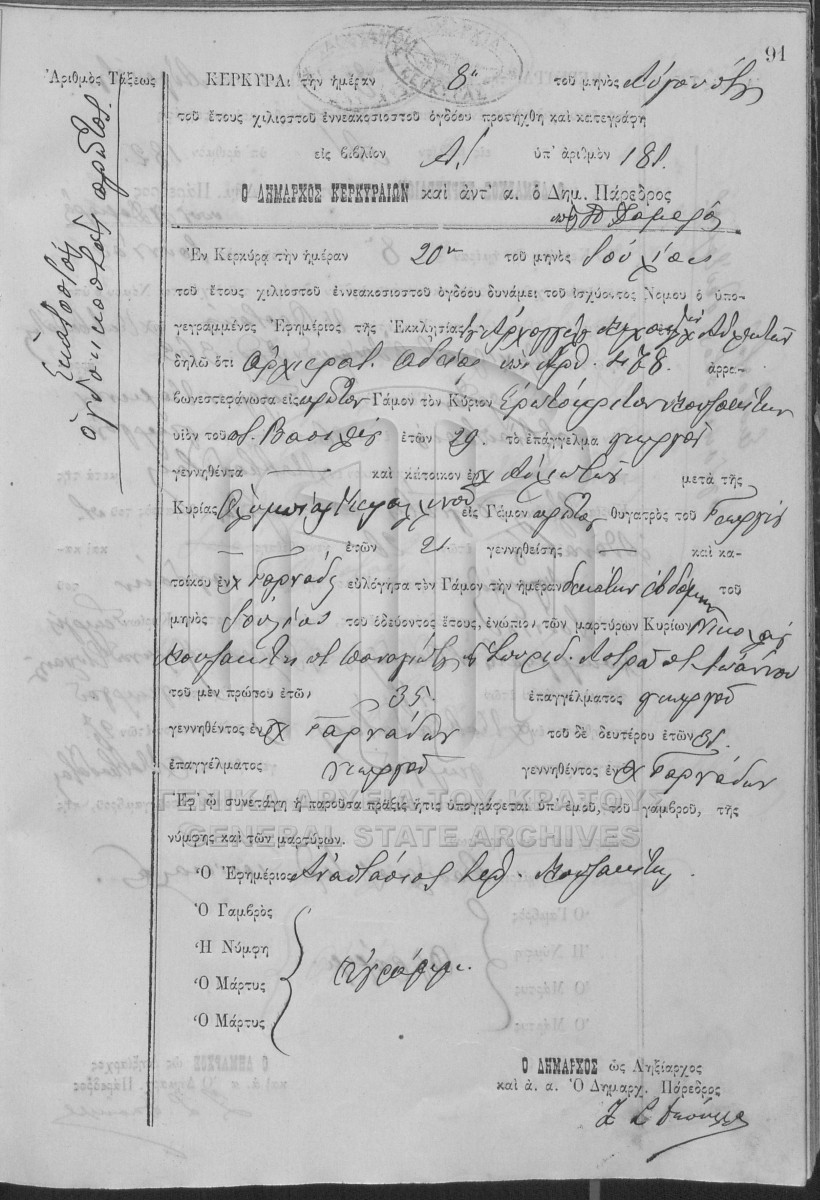 91
Ἀριθμὸς Τάξεως
Ἑκατοστὸς
ὀγδοηκοστὸς πρῶτος.
ΚΕΡΚΥΡΑ: τὴν ἡμέραν 8ην τοῦ μηνὸς Αὐγούστου
τοῦ ἔτους χιλιοστοῦ ἐννεακοσιοστοῦ ὀγδόου προσήχθη καὶ κατεγράφη
εἰς βιβλίον Α! ὑπ' ἀριθμὸν 181.
Ὁ ΔΗΜΑΡΧΟΣ ΚΕΡΚΥΡΑΙΩΝ καὶ ἀντ' α. ὁ Δημ. Πάρεδρος
Ἐν Κερκύρᾳ τὴν ἡμέραν 20ην τοῦ μηνὸς Ἰουλίου
τοῦ ἔτους χιλιοστοῦ ἐννεακοσιοστοῦ ὀγδόου δυνάμει τοῦ ἰσχύοντος Νόμου ὁ ὑπο-
γεγραμμένος Ἐφημέριος τῆς Ἐκκλησίας
δηλῶ ὅτι ἀρχιερατ. ἀδείας ὑπ' ἀρθ. 478. ἀρρα-
βωνεστεφάνωσα εἰς πρῶτον Γάμον τὸν Κύριον Ἐρωτόκριτον Κουζακίτην
υἱὸν τοῦ π. Βασιλείου ἐτῶν 29. τὸ ἐπάγγελμα γεωργοῦ
γεννηθέντα — καὶ κάτοικον ἐν χ Αὐλιωτῶν μετὰ τῆς
Κυρίας Ὀλυμπίας εἰς Γάμον πρῶτον θυγατρὸς τοῦ Γεωργίου
— ἐτῶν 21. γεννηθείσης — καὶ κα-
τοίκου ἐν χ Γαρνάδες εὐλόγησα τὸν Γάμον τὴν ἡμέραν δεκάτην ἑβδόμην τοῦ
μηνὸς Ἰουλίου τοῦ ὁδεύοντος ἔτους, ἐνώπιον τῶν μαρτύρων Κυρίων Νικολάου
Κουζακίτη π. Παναγιώτη κ Σπυρίδ. π. Ἰωάννου
τοῦ μὲν πρώτου ἐτῶν 35. ἐπαγγέλματος γεωργοῦ
γεννηθέντος ἐν χ Γαρνάδων τοῦ δὲ δευτέρου ἐτῶν 31.
ἐπαγγέλματος γεωργοῦ γεννηθέντος ἐν χ Γαρνάδων
ΓΕΝΙΚΑ ΑΡΧΕΙΑ ΤΟΥ ΚΡΑΤΟΥΣ
Ἐφ' ᾧ συνετάγη ἡ παροῦσα πρᾶξις ἥτις ὑπογράφεται ὑπ' ἐμοῦ, τοῦ γαμβροῦ, τῆς
GENERAL STATE ARCHIVES
νύμφης καὶ τῶν μαρτύρων.
Ὁ Ἐφημέριος Ἀναστάσιος Ἱερ. Κουζακίτης.
Ὁ Γαμβρὸς
Ἡ Νύμφη
Ὁ Μάρτυς
Ὁ Μάρτυς
Ὁ ΔΗΜΑΡΧΟΣ ὡς Ληξίαρχος
καὶ ἀ. α. Ὁ Δημαρχ. Πάρεδρος